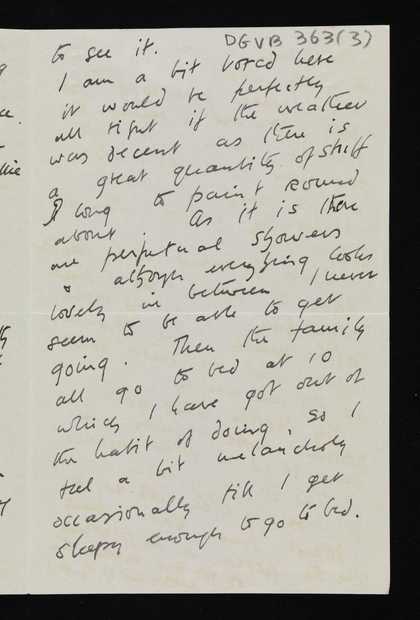 DGVB 363(3)
to see it.
I am a bit bored here
it would be perfectly
all right if the weather
was decent as there is
a great quantity of stuff
I long to paint round
about. As it is there
are perpetual showers
& although everything looks
lovely in between I never
seem to be able to get
going. Then the family
all go to bed at 10
which I have got out of
the habit of doing, so I
feel a bit melancholy
occasionally till I get
sleepy enough to go to bed.